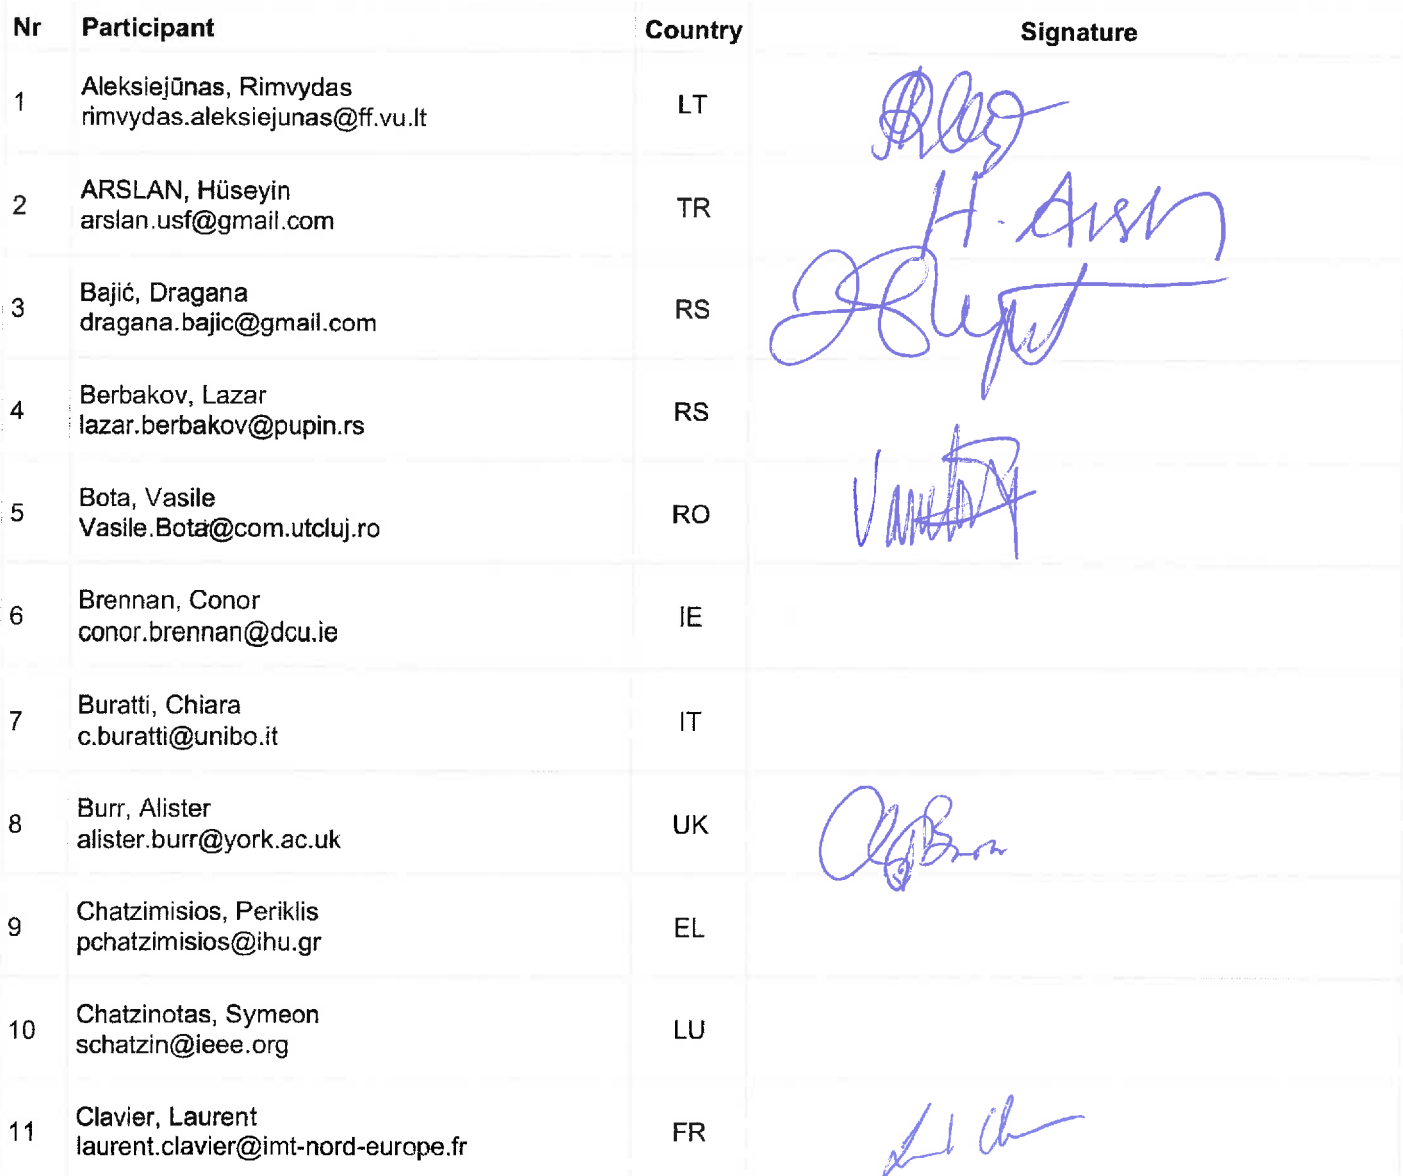 Nr Participant Country Signature
1 Aleksiejūnas, Rimvydas LT
rimvydas.aleksiejunas@ff.vu.lt
2 ARSLAN, Hüseyin TR H. Arsln
arslan.usf@gmail.com
3 Bajić, Dragana RS
dragana.bajic@gmail.com
4 Berbakov, Lazar RS
lazar.berbakov@pupin.rs
5 Bota, Vasile RO
Vasile.Bota@com.utcluj.ro
6 Brennan, Conor IE
conor.brennan@dcu.ie
7 Buratti, Chiara IT
c.buratti@unibo.it
8 Burr, Alister UK
alister.burr@york.ac.uk
9 Chatzimisios, Periklis EL
pchatzimisios@ihu.gr
10 Chatzinotas, Symeon LU
schatzin@ieee.org
11 Clavier, Laurent FR
laurent.clavier@imt-nord-europe.fr